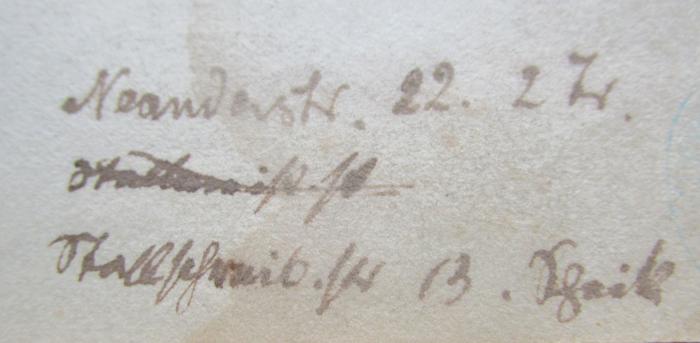 Neanderstr. 22. 2 Tr.
Stallschreib.str 13.